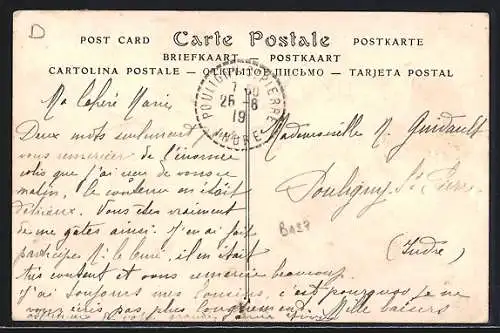 D
POST CARD Carte Postale POSTKARTE
BRIEFKAART POSTKAART
CARTOLINA POSTALE — ОТКРЫТОЕ ПИСЬМО — TARJETA POSTAL
POULIGNY PIERRE
25-8
19
INDRE
Ma Marie
Deux mots seulement
vous remercier de l'énorme
colis que j'ai de vous ce
matin. Le en était
délicieux. Vous êtes vraiment
de me gâter ainsi. J'en ai fait
participer M. le Curé, il en était
très content et vous remercie beaucoup.
J'ai toujours mes, c'est pourquoi je ne
vous écris pas plus longuement. Mille baisers
Mademoiselle M. Guidault
Pouligny St Pierre
(Indre)